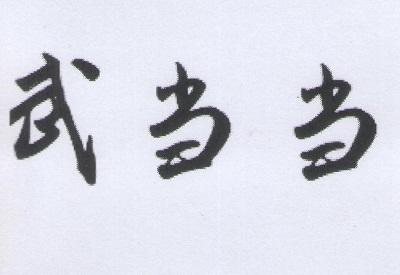 武当当